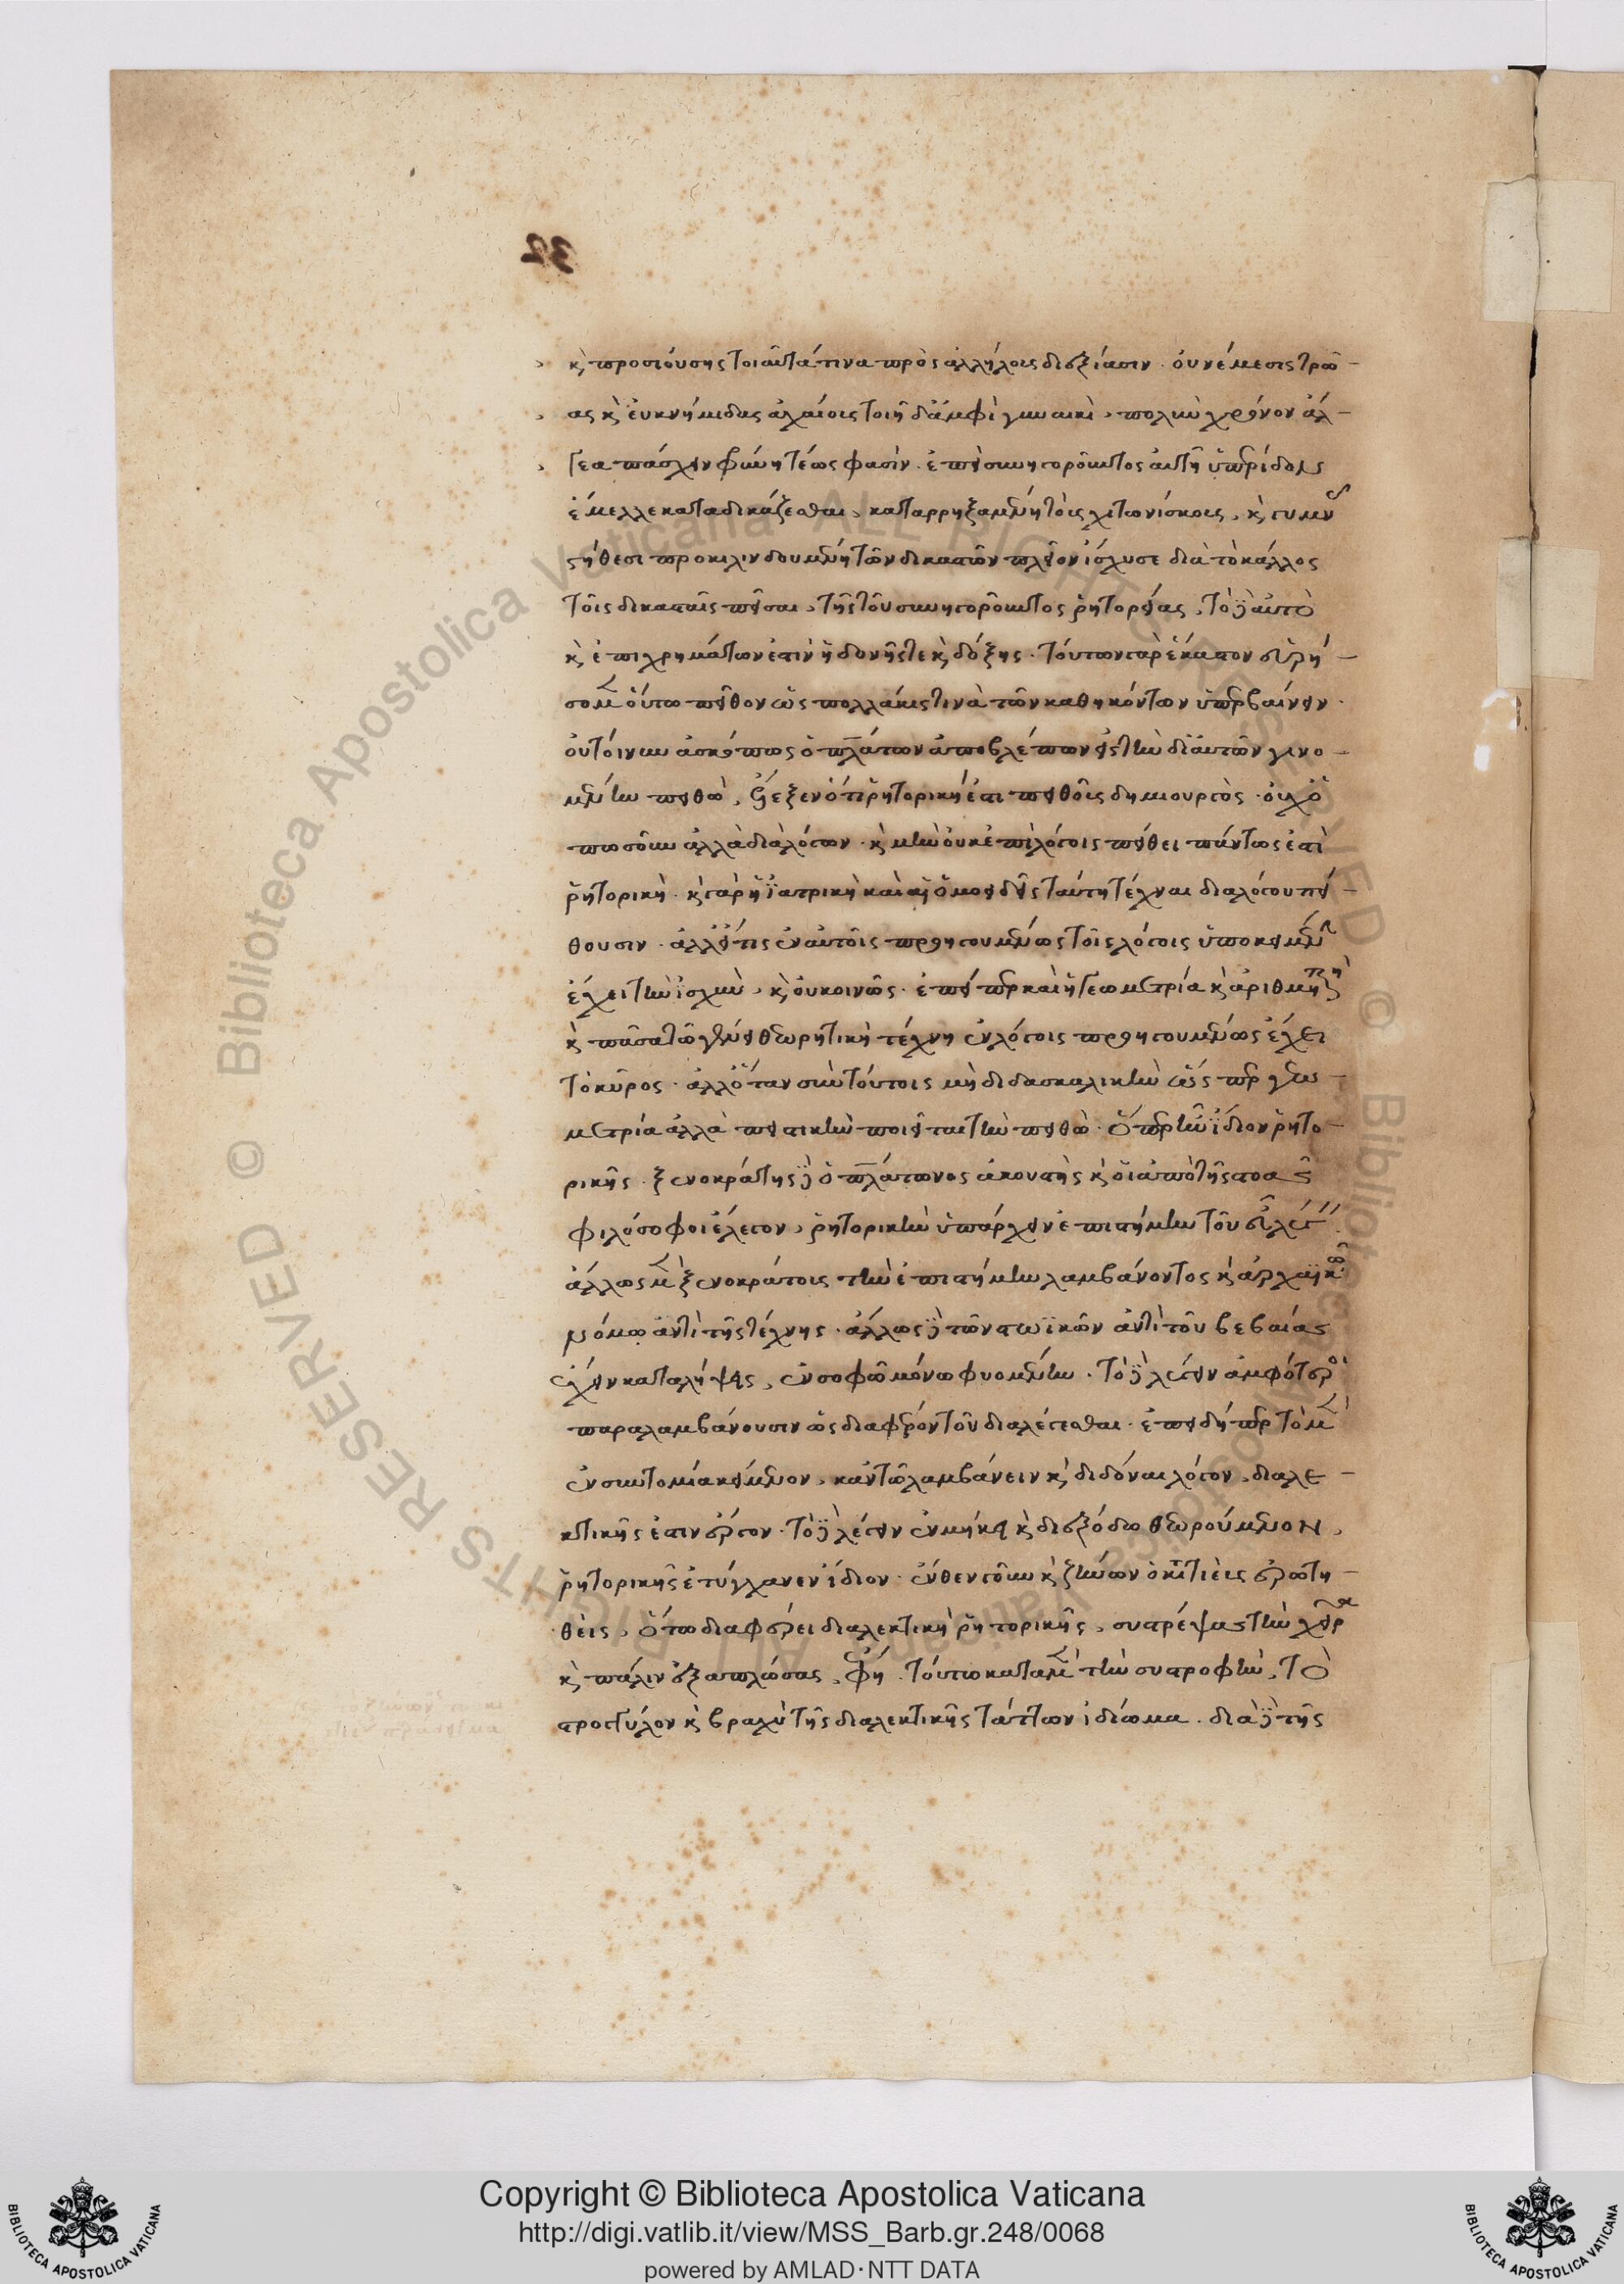 32
καὶ προσιούσης τοιαῦτά τινα πρὸς ἀλλήλους διεξίασιν · οὐ νέμεσις τρῶ-
ας καὶ ἐυκνήμιδας ἀχαίους τοιῆδ' ἀμφὶ γυναικὶ, πολὺν χρόνον ἄλ-
γεα πάσχειν φρύνη τέως φασὶν · ἐπεὶ συνηγοροῦντος αὐτῆ ὑπερίδου
ἔμελλε καταδικάζεσθαι, καταρρηξαμένη τοὺς χιτωνίσκους, καὶ γυμνοῖς
στήθεσι προκυλινδουμένη τῶν δικαστῶν πλεῖον ἴσχυσε διὰ τὸ κάλλος
τοὺς δικαστὰς πεῖσαι, τῆς τοῦ συνηγοροῦντος ῥητορείας, τὸ δὲ αὐτὸ
καὶ ἐπὶ χρημάτων ἐστὶν ἡδονῆς τε καὶ δόξης · τούτων γὰρ ἕκαστον εὑρή-
σομεν οὕτω πεῖθον ὡς πολλάκις τινὰ τῶν καθηκόντων ὑπερβαίνειν ·
οὐ τοίνυν ἀσκόπως ὁ πλάτων ἀποβλέπων εἰς τὴν δι' αὐτῶν γινο-
μένην πειθὼ, ἔλεξεν ὅτι ῥητορική ἐστι πειθοῦς δημιουργὸς · οὐχ ὅ
πωσοῦν ἀλλὰ διὰ λόγων · καὶ μὴν οὐκ ἐπεὶ λόγοις πείθει πάντως ἐστὶ
ῥητορικὴ · καὶ γὰρ ἡ ἰατρικὴ καὶ αἱ ὁμοειδεῖς ταύτη τέχναι διὰ λόγου πεί-
θουσιν · ἀλλ' εἴ τις ἐν αὐτοῖς προηγουμένως τοῖς λόγοις ὑποκειμένην
ἔχει τὴν ἰσχὺν, καὶ οὐ κοινῶς · ἐπείπερ καὶ ἡ γεωμετρία καὶ ἀριθμητικὴ
καὶ πᾶσα τῶ γένει θεωρητικὴ τέχνη ἐν λόγοις προηγουμένως ἔχει
τὸ κῦρος · ἀλλ' ὅταν σὺν τούτοις μὴ διδασκαλικὴν ὥσπερ γεω-
μετρία ἀλλὰ πειστικὴν ποιεῖται τὴν πειθὼ · ὅπερ ἦν ἴδιον ῥητο-
ρικῆς · ξενοκράτης δὲ ὁ πλάτωνος ἀκουστὴς καὶ οἱ ἀπὸ τῆς στοᾶς
φιλόσοφοι ἔλεγον, ῥητορικὴν ὑπάρχειν ἐπιστήμην τοῦ εὖ λέγειν ·
ἄλλως μὲν ξενοκράτους τὴν ἐπιστήμην λαμβάνοντος καὶ ἀρχαϊκῶ
νόμω ἀντὶ τῆς τέχνης · ἄλλως δὲ τῶν στωϊκῶν ἀντὶ τοῦ βεβαίας
ἔχειν καταλήψεις, ἐν σοφῶ μόνω φυομένην · τὸ δὲ λέγειν ἀμφότεροι
παραλαμβάνουσιν ὡς διαφέρον τοῦ διαλέγεσθαι · ἐπειδήπερ τὸ μὲν
ἐν συντομία κείμενον, κἀν τῶ λαμβάνειν καὶ διδόναι λόγον, διαλε-
κτικῆς ἐστιν ἔργον · τὸ δὲ λέγειν ἐν μήκει καὶ διεξόδω θεωρούμενον,
ῥητορικῆς ἐτύγχανεν ἴδιον · ἔνθεν γοῦν καὶ ζήνων ὁ κιτιεὺς ἐρωτη-
θεὶς, ὅτω διαφέρει διαλεκτικὴ ῥητορικῆς, συστρέψας τὴν χεῖρα
καὶ πάλιν ἐξαπλώσας, ἔφη · τούτω κατὰ μὲν τὴν συστροφὴν, τὸ
στρογγύλον καὶ βραχὺ τῆς διαλεκτικῆς τάττων ἰδίωμα · διὰ δὲ τῆς
Copyright © Biblioteca Apostolica Vaticana
http://digi.vatlib.it/view/MSS_Barb.gr.248/0068
powered by AMLAD·NTT DATA